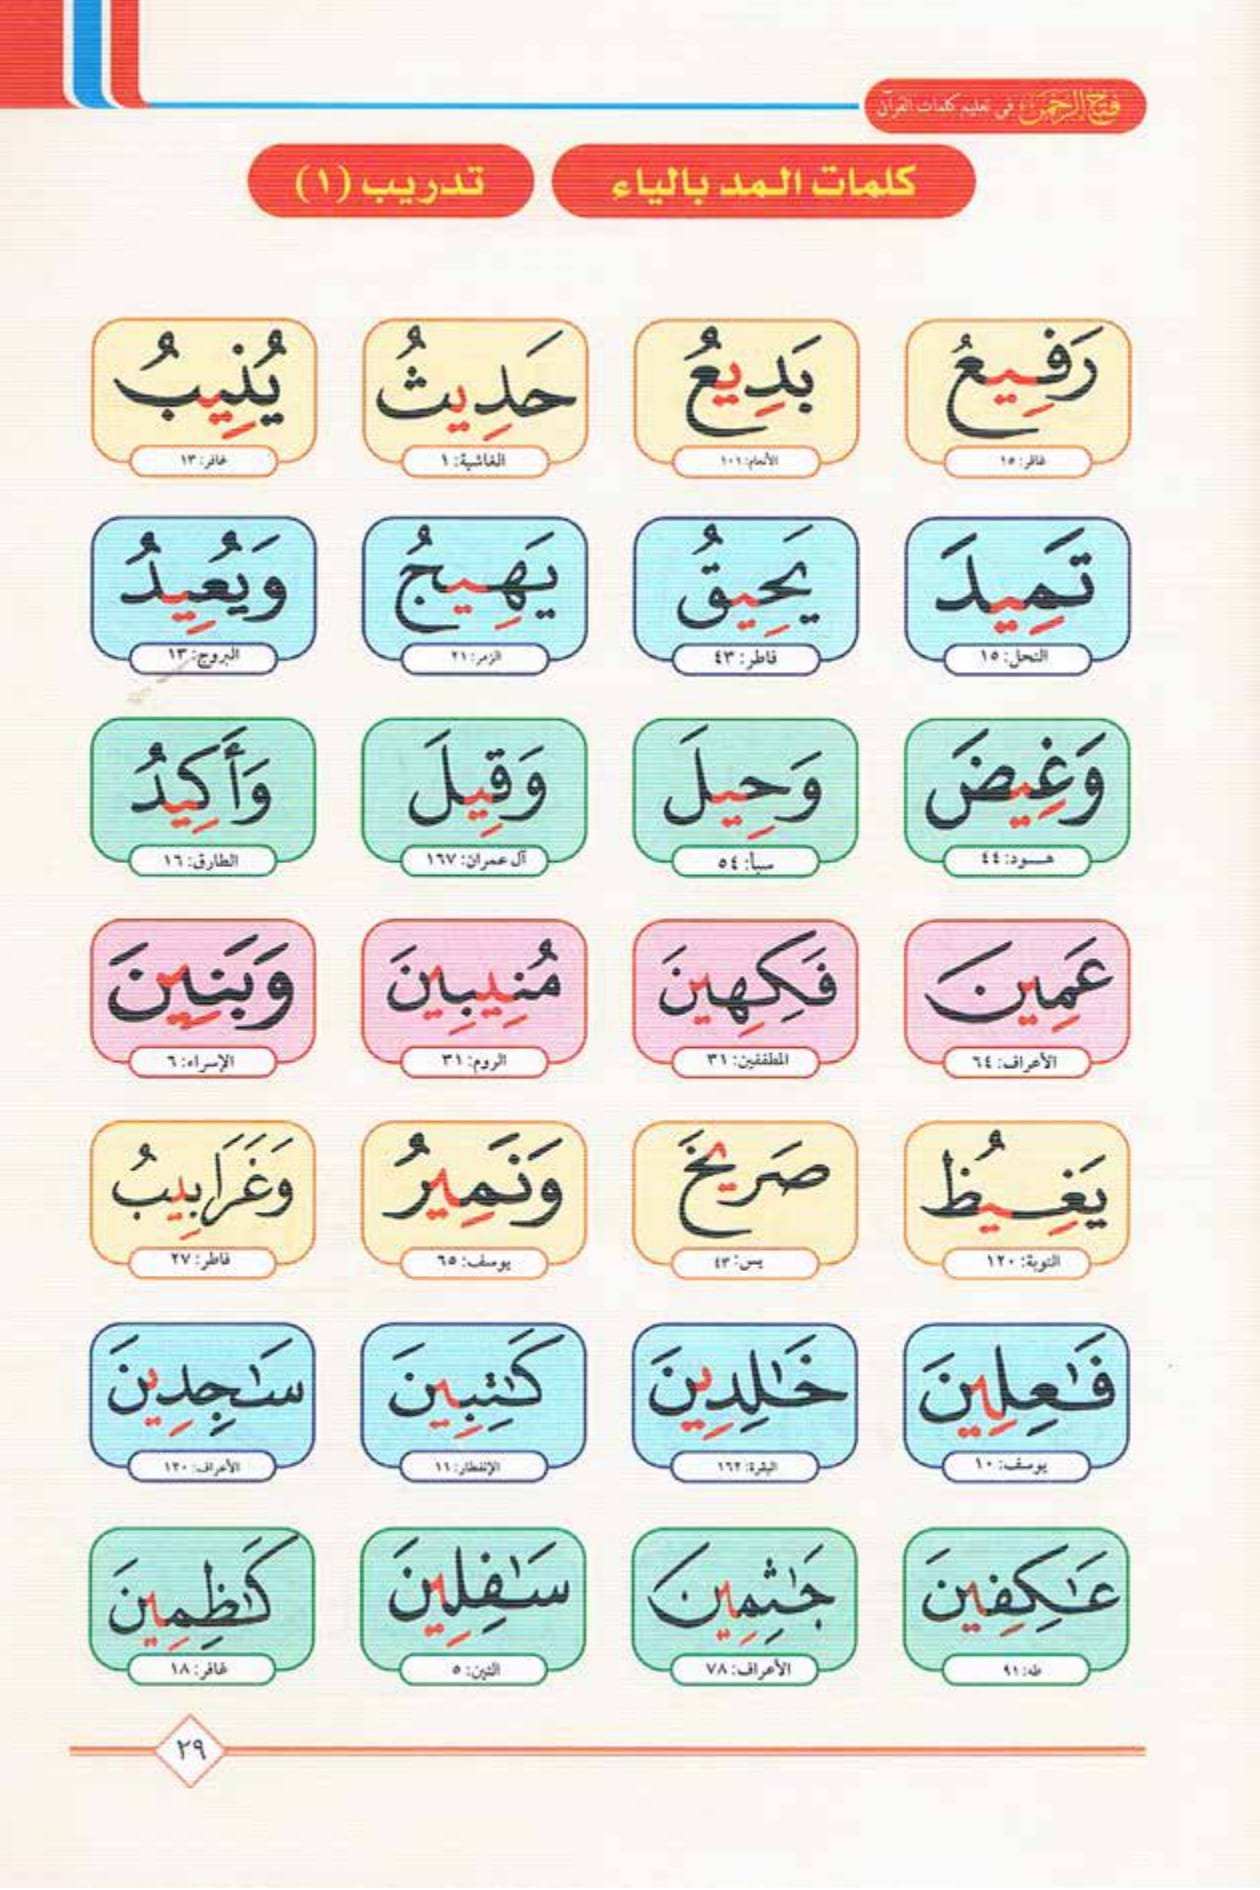 فتح الرحمن في تعليم كلمات القرآن
كلمات المد بالياء تدريب (١)
رَفِيعُ بَدِيعُ حَدِيثُ يُنِيبُ
غافر: ١٥ الأنعام: ١٠١ الغاشية: ١ غافر: ١٣
تَمِيدَ يَحِيقُ يَهِيجُ وَيُعِيدُ
النحل: ١٥ فاطر: ٤٣ الزمر: ٢١ البروج: ١٣
وَغِيضَ وَحِيلَ وَقِيلَ وَأَكِيدُ
هــود: ٤٤ سبأ: ٥٤ آل عمران: ١٦٧ الطارق: ١٦
عَمِينَ فَكِهِينَ مُنِيبِينَ وَبَنِينَ
الأعراف: ٦٤ المطففين: ٣١ الروم: ٣١ الإسراء: ٦
يَغِيظُ صَرِيخَ وَنَمِيرُ وَغَرَابِيبُ
التوبة: ١٢٠ يس: ٤٣ يوسف: ٦٥ فاطر: ٢٧
فَـٰعِلِينَ خَـٰلِدِينَ كَـٰتِبِينَ سَـٰجِدِينَ
يوسف: ١٠ البقرة: ١٦٢ الإنفطار: ١١ الأعراف: ١٢٠
عَـٰكِفِينَ جَـٰثِمِينَ سَـٰفِلِينَ كَـٰظِمِينَ
طه: ٩١ الأعراف: ٧٨ التين: ٥ غافر: ١٨
٢٩